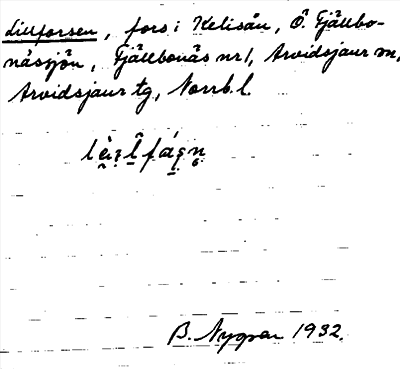 Lillforsen, fors i Kelisån, Ö. Fjällbo-
näsjön, Fjällbonäs nr 1, Arvidsjaur sn,
Arvidsjaur tg, Norrb. l.
B. Nygren 1932.